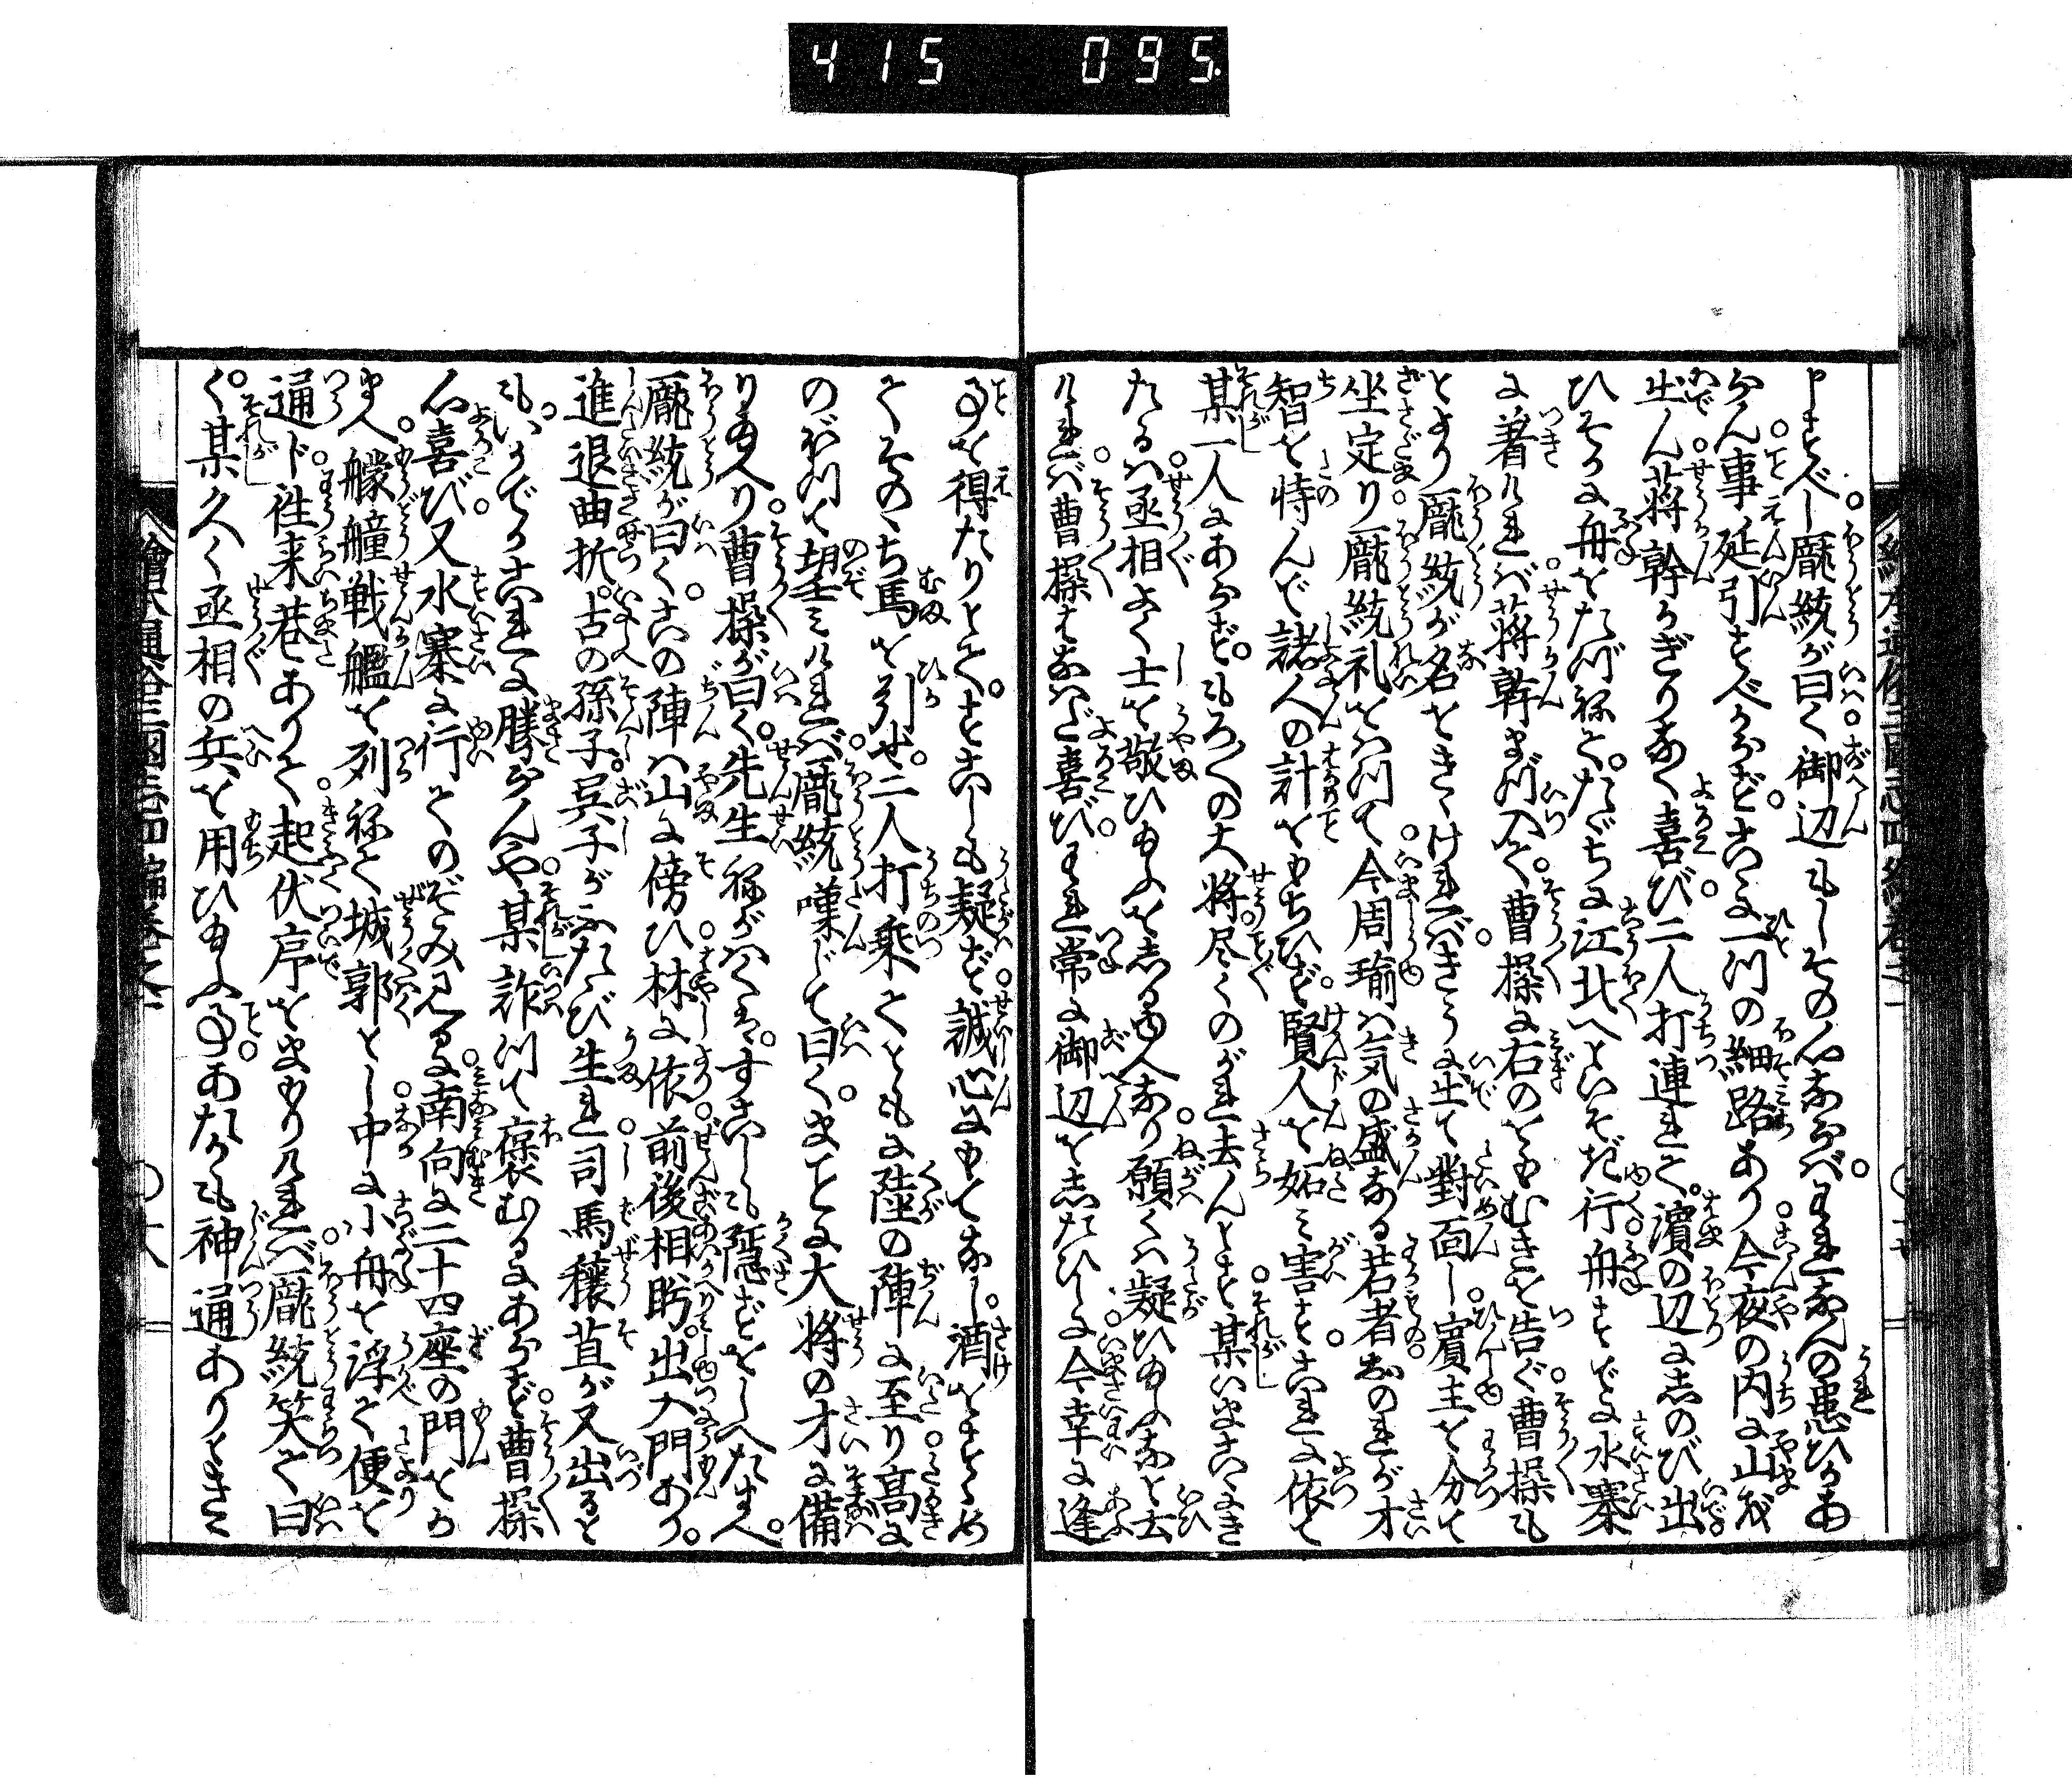 415 095
申すべし龐統が曰く御辺もしその心ならバわれ豈人の患ひにあ
らん事延引すべからずこゝに一川の細路あり今夜の内に山を
出ん蒋幹かぎりなく喜び二人打連れて濱の辺に忍び出
ひそかに舟をたづねてたゞちに江北へといそぎ行舟すでに水寨
に着ければ蒋幹まづ入て曹操に右のをもむきを告ぐ曹操も
とより龐統が名をきゝければいそぎ出て對面し賓主を分て
坐定り龐統礼をはつて今周瑜ハ気の盛なる若者おのれが才
智を恃んで諸人の計をもちひず賢人を妬ミ害すこれに依て
某一人にあらずもろ〳〵の大将尽くのがれ去んとす某いまこゝにき
たるハ丞相よく士を敬ひ給ふをしる故なり願くハ疑ひ給ふなと云
ければ曹操はなはだ喜びわれ常に御辺をしたひしに今幸に逢
事を得たりとてすこしも疑ず誠心にもてなし酒をすゝめ
てそのゝち馬を引せ二人打乗てともに陸の陣に至り高に
のぼつて望ミければ龐統嘆じて曰くまことに大将の才に備
り給へり曹操が曰く先生ねがはくはすこしも隠ずをしへたまへ
龐統が曰くこの陣ハ山に傍ひ林に依前後相眄出入門あり
進退曲折古の孫子呉子がふたゝび生れ司馬穰苴が又出ると
も いかでかこれに勝らんや某詐つて褒むるにあらず曹操
心喜び又水寨に行てのぞみ見るに南向に二十四座の門をか
まへ艨艟戦艦を列ねて城郭とし中に小舟を浮て便を
通ド往来巷ありて起伏序をまもりければ龐統笑て曰
く某久く丞相の兵を用ひ給ふ事あたかも神通ありときこ
繪本通俗三國志四編巻之一